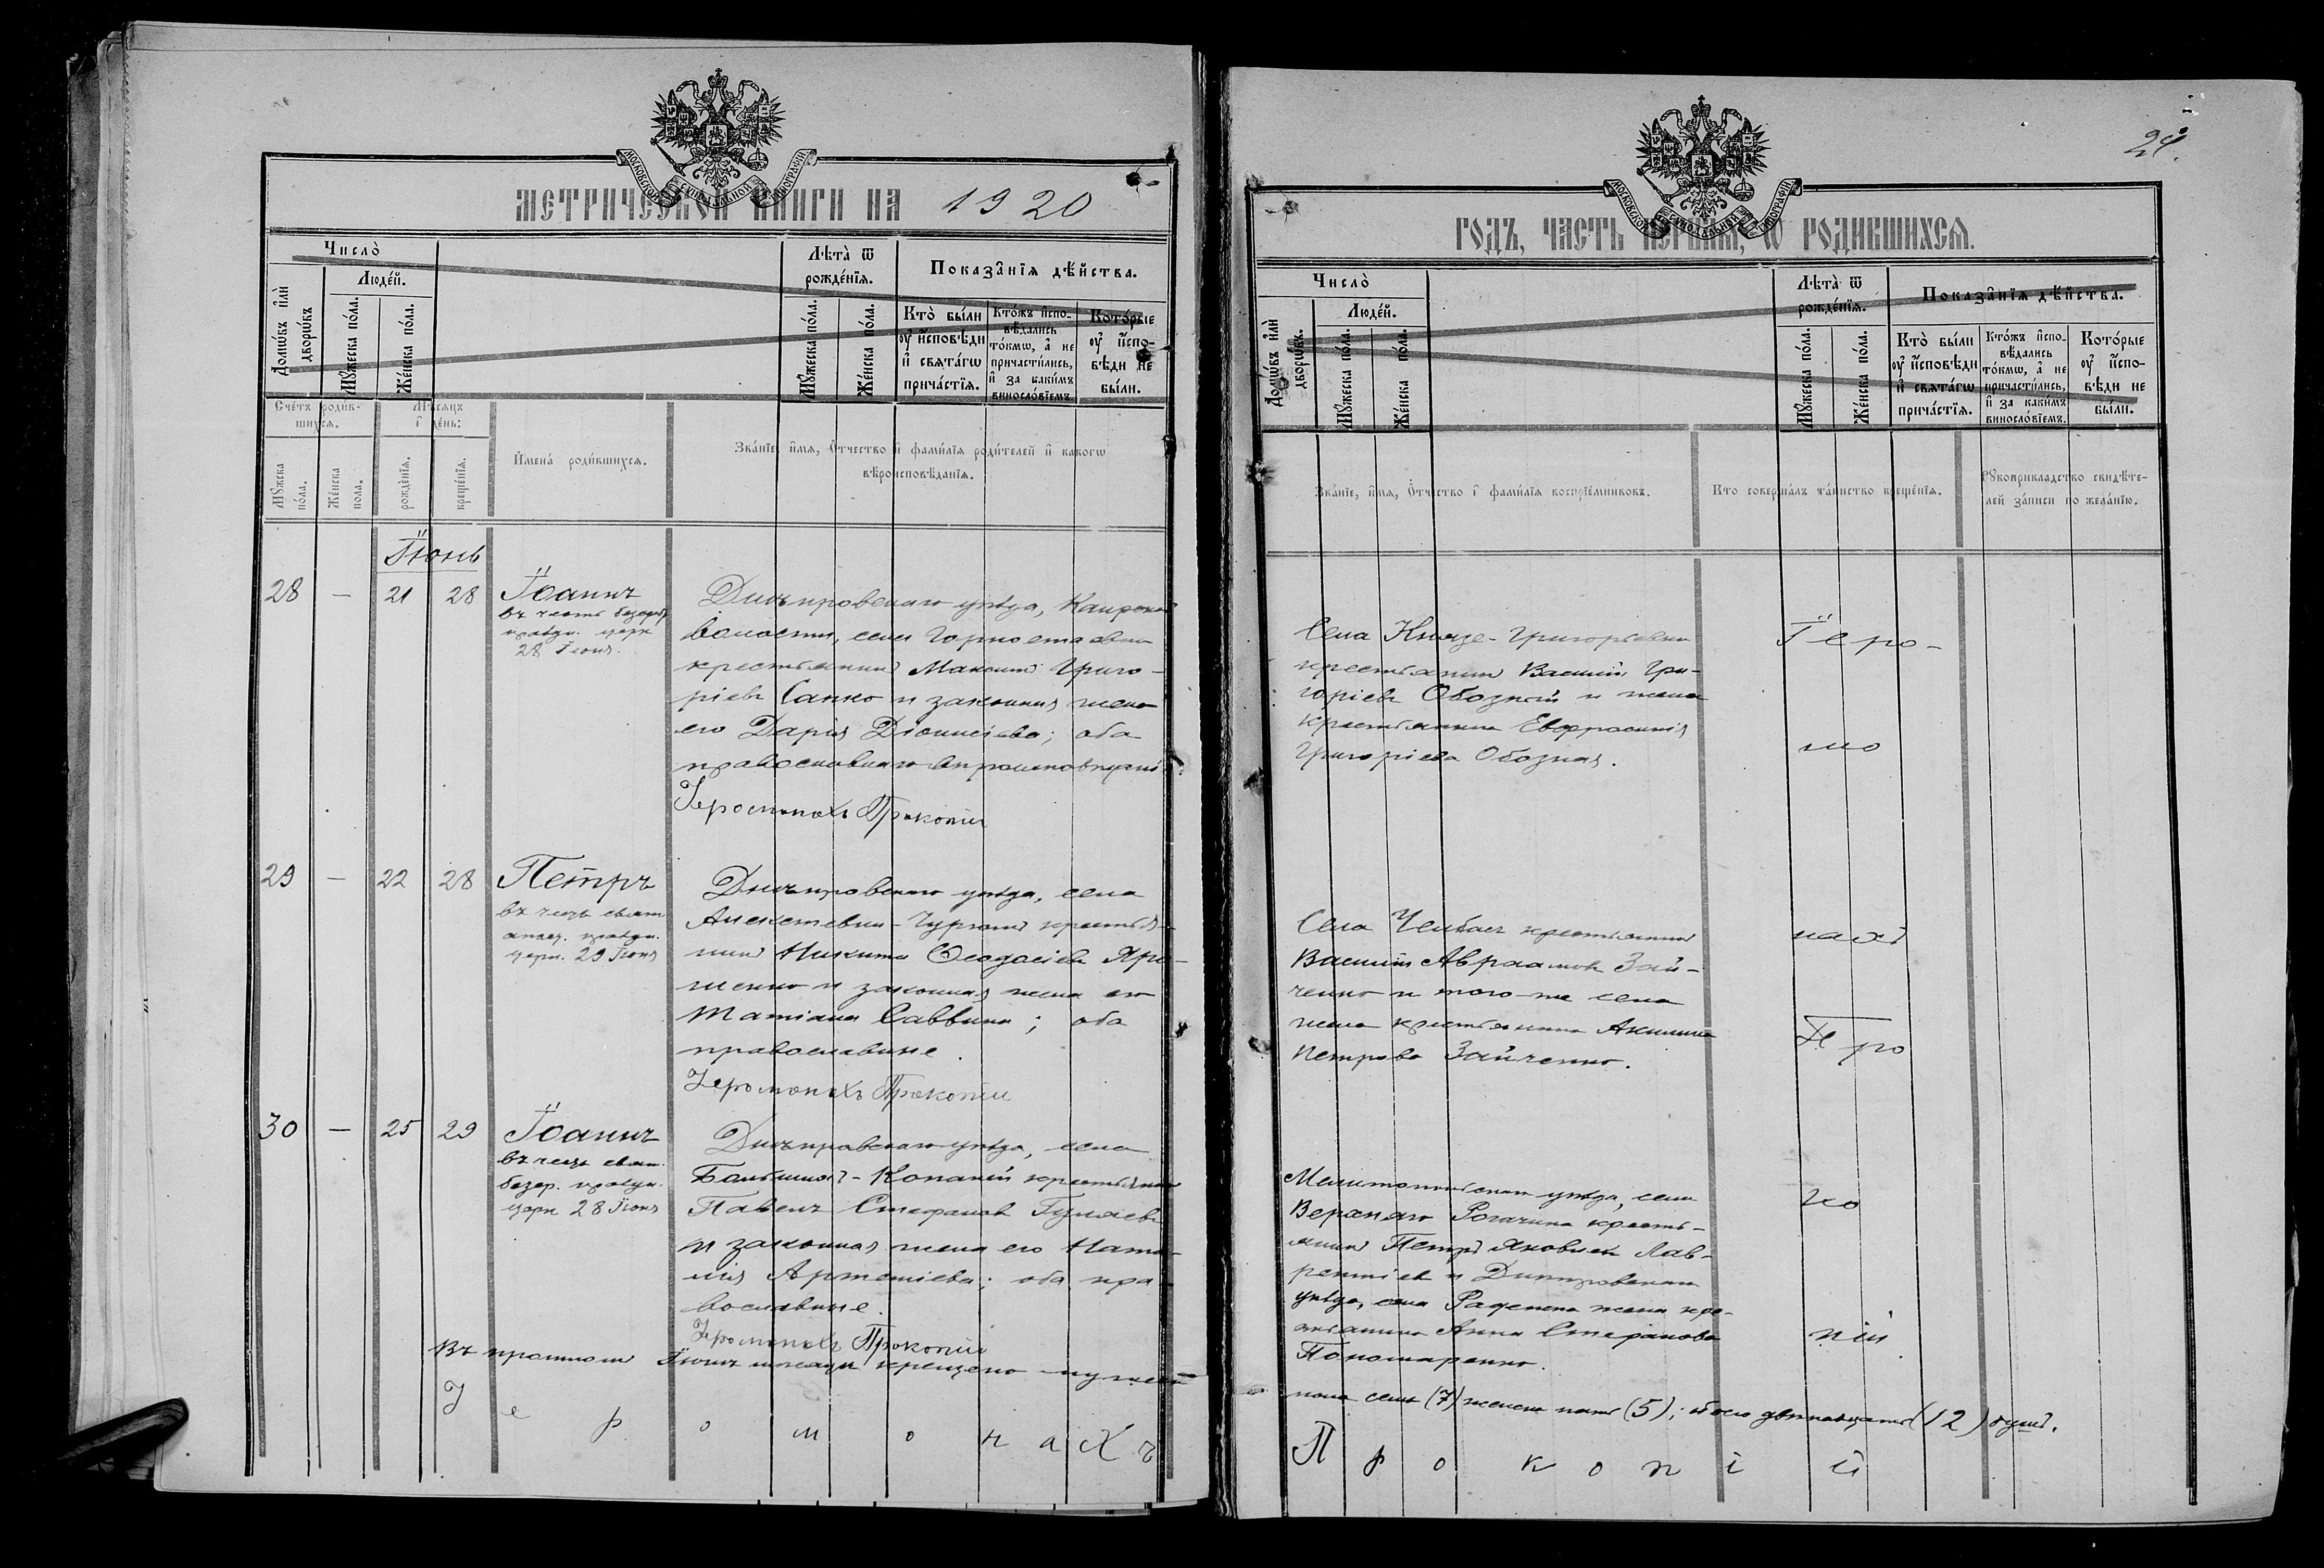 МЕТРИЧЕСКОЙ КНИГИ НА 1920
Число̀
Людей.
Домѡвъ илѝ дворѡвъ
Мꙋжеска пола.
Женска пола.
Лѣта̀ ѿ рожденїѧ.
Мꙋжеска пола.
Женска пола.
Показанїѧ дѣйства.
Кто̀ были ᲂу҆ исповѣди и свѧтагѡ причастїѧ.
Ктожъ исповѣдались токмѡ, а не причастились, и за какимъ винословїемъ.
Которые ᲂу҆ исповѣди не были.
Счетъ родившихсѧ.
Мѣсѧцъ и день:
Мꙋжеска пола.
Женска пола.
рожденїѧ.
крещенїѧ.
Имена̀ родившихсѧ.
Званїе, имѧ, отчество и фамилїѧ родителей и какогѡ
вѣроисповѣданїѧ.
Іюнь
28 — 21 28 Іоаннъ
въ честь безср.
праздн. церк.
28 Іюня.
Днѣпровскаго уѣзда, Каирской
волости, села Горностаевки
крестьянинъ Максимъ Григо-
ріевъ Санко и законная жена
его Дарія Діонисіева; оба
православнаго вѣроисповѣданія.
Іеромонахъ Прокопій
29 — 22 28 Петръ
въ честь свят.
апост. праздн.
церк. 29 Іюня
Днѣпровскаго уѣзда, села
Алексѣевки-Чурюмъ крестья-
нинъ Никита Ѳеодосіевъ Яро-
шенко и законная жена его
Татіана Саввина; оба
православные.
Іеромонахъ Прокопій
30 — 25 29 Іоаннъ
въ честь свят.
безср. праздн.
церк. 28 Іюня
Днѣпровскаго уѣзда, села
Большой-Копаней крестьянинъ
Павелъ Стефановъ Гуляевъ
и законная жена его Ната-
лія Артеміева; оба пра-
вославные.
Іеромонахъ Прокопій
Въ прошломъ Іюнѣ мѣсяцѣ крещено мужеск
Іеромонахъ
24.
ГОДЪ, ЧАСТЬ ПЕРВАѦ, Ѡ РОДИВШИХСѦ.
Число̀
Людей.
Домѡвъ илѝ дворѡвъ.
Мꙋжеска пола.
Женска пола.
Лѣта̀ ѿ рожденїѧ.
Мꙋжеска пола.
Женска пола.
Показанїѧ дѣйства.
Кто̀ были ᲂу҆ исповѣди и свѧтагѡ причастїѧ.
Ктожъ исповѣдались токмѡ, а не причастились, и за какимъ винословїемъ.
Которые ᲂу҆ исповѣди не были.
Званїе, имѧ, отчество и фамилїѧ воспрїемникѡвъ.
Кто совершалъ таинство крещенїѧ.
Рꙋкоприкладство свидѣтелей записи по желанїю.
Села Князе-Григорьевки
крестьянинъ Василій Гри-
горіевъ Обозный и жена
крестьянина Евфросинія
Григоріева Обозная.
Іеро-
мо
Села Челбасъ крестьянинъ
Василій Авраамовъ Зай-
ченко и того-же села
жена крестьянина Акилина
Петрова Зайченко.
нахъ
Про
Мелитопольскаго уѣзда, села
Верхняго Рогачика кресть-
янинъ Петръ Яковлевъ Лав-
рентіевъ и Днѣпровскаго
уѣзда, села Раденска жена кре-
стьянина Анна Стефанова
Пономаренко.
ко
пій
пола семь (7) женска пять (5); обоего двѣнадцать (12) душъ.
Прокопій